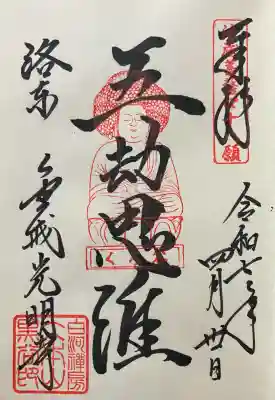 奉拝
令和七年
四月卅日
五劫思惟
洛東
金戒光明寺
白河禅房